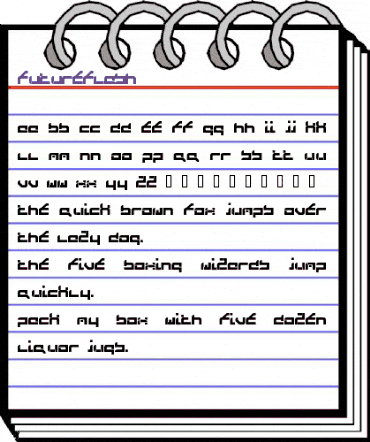 futureflash
aa bb cc dd EE ff gg hh ii jj KK
LL mm nn oo pp qq rr ss tt uu
vv ww xx yy zz
the quick brown fox jumps over
the lazy dog.
the five boxing wizards jump
quickly.
pack my box with five dozen
liquor jugs.